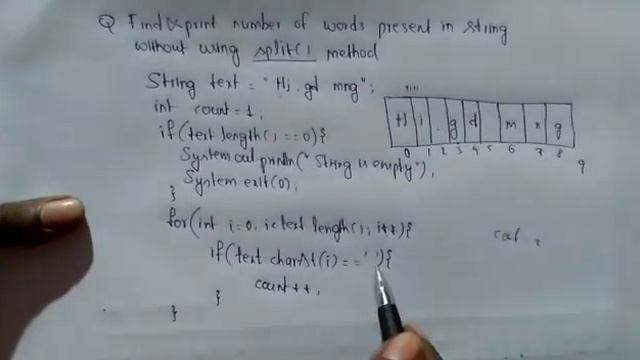 Q Find & print number of words present in string
without using split() method
String text = "Hi.gd mng";
int count=1;
if(text length()==0){
System out.println("String is empty");
System.exit(0);
}
for(int i=0, i<text length(); i++){
if(text charAt(i)==' '){
count++;
}
}
H i . g d m n g
0 1 2 3 4 5 6 7 8 9